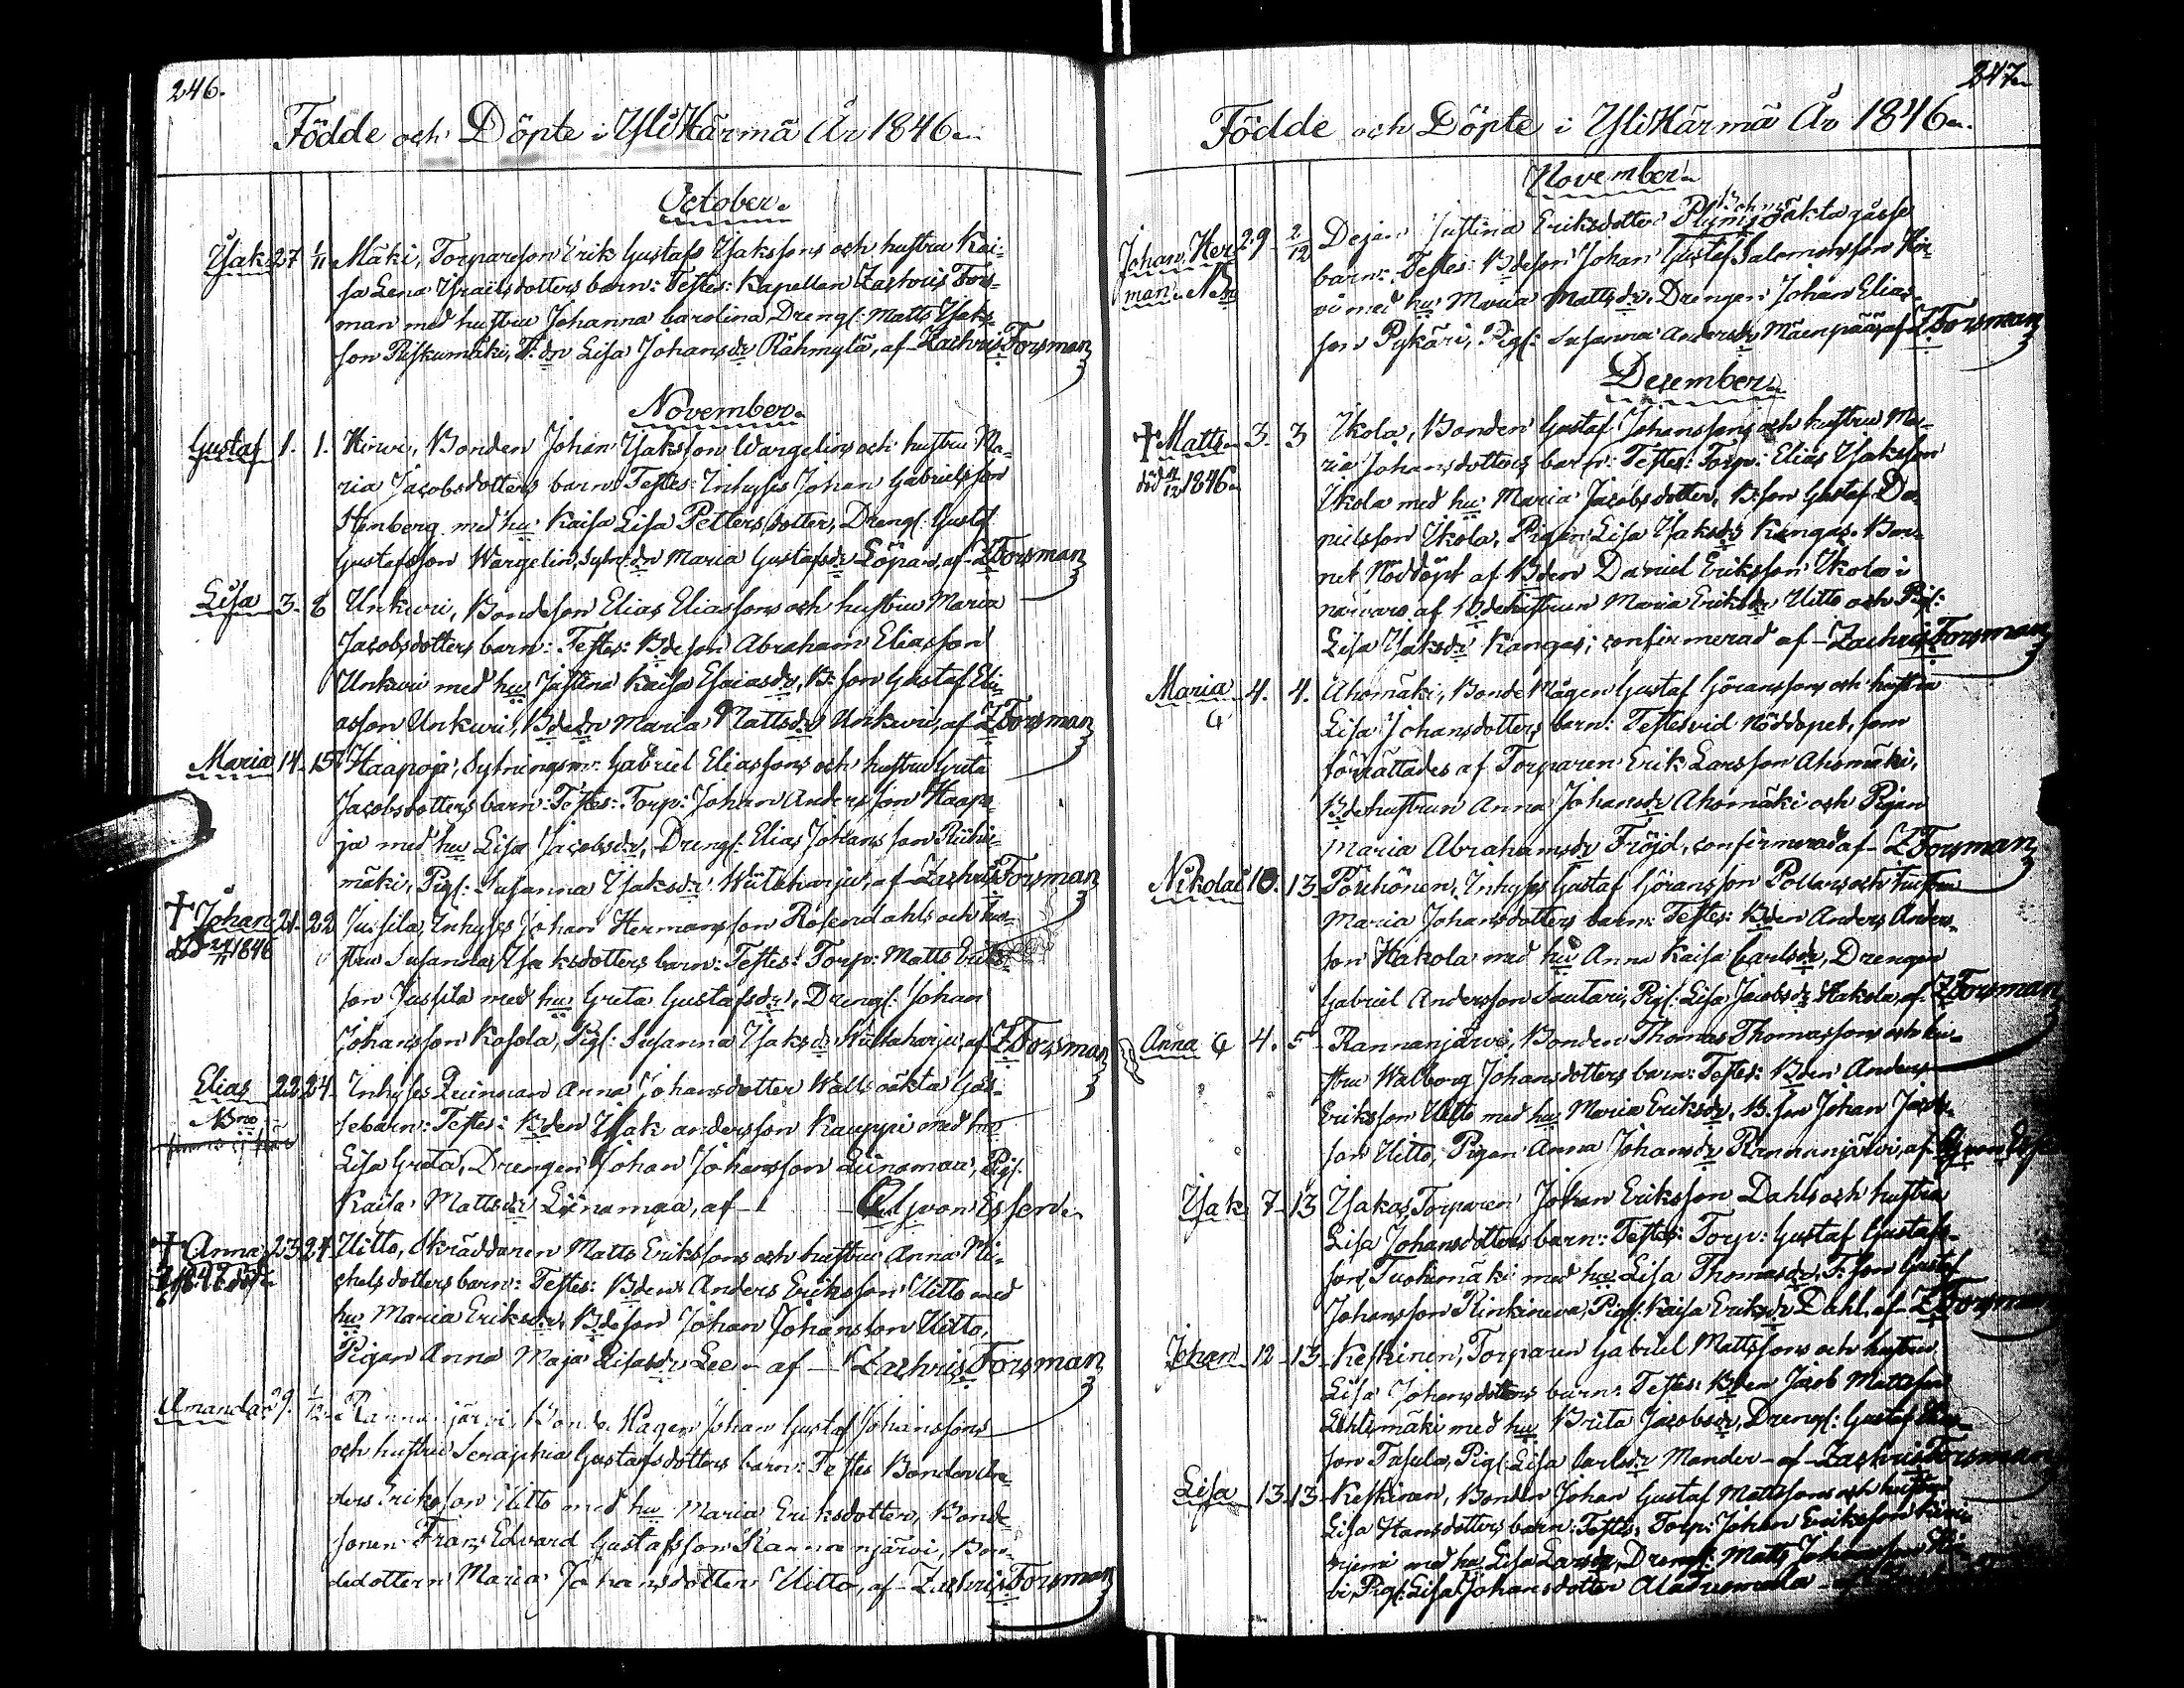 246.
Födde och Döpte i YliHärmä År 1846
October
Isak 27 1/11 Mäki, Torpareson Erik Gustafs Isakssons och hustru Kai-
sa Lena Israelsdotters barn: Testes: Kapellan Zachris Fors-
man med hustru Johanna Carolina, Drengs: Matts Isaks-
son Piskumäki, T:dr Lisa Johansdr Rähmylä, af Zachris Forsman
November
Gustaf 1. 1. Hirvi, Bonden Johan Isaksson Wargelins och hustru Ma-
ria Jacobsdotters barn: Testes: Inhyses Johan Gabrielsson
Stenberg med hu: Kaisa Lisa Pettersdotter, Drengs: Gustaf
Gustafsson Wargelin, Sytn:dr Maria Gustafsdr Löpar, af Z Forsman
Lisa 3. 8 Unkuri, Bondeson Elias Eliassons och hustru Maria
Jacobsdotters barn: Testes: Bdeson Abraham Eliasson
Unkuri med hu Justina Kaisa Esaiasdr, B:son Gustaf Eli-
asson Unkuri, Bdedr Maria Mattsdr Unkuri, af Z Forsman
Maria 14. 15 Haapoja, Sytningsm: Gabriel Eliassons och hustru Greta
Jacobsdotters barn: Testes: Torp: Johan Andersson Haapo-
ja med hu Lisa Jacobsdr, Drengs: Elias Johansson Riihi-
mäki, Pigs: Susanna Isaksdr Wiitaharju, af Zachris Forsman
† Johan 21. 22 Jussila, Inhyses Johan Hermansson Rosendahls och hu-
död 24/11 1846 stru Susanna Isaksdotters barn: Testes: Torp: Matts Eriks-
son Jussila med hu Greta Gustafsdr, Drengs: Johan
Johansson Kosola, Pigs: Susanna Isaksdr Wiitaharju, af Z Forsman
Elias 22 24 Inhyses Qvinnan Anna Johansdotter Walls oäkta Gos-
sebarn: Testes: Bden Isak Andersson Kauppi med hu
Lisa Greta, Drengen Johan Johansson Liinamaa, Pigs:
Kaisa Mattsdr Liinamaa, af von Essen
† Anna 23 24 Uitto, Skräddaren Matts Erikssons och hustru Anna Mi-
chelsdotters barn: Testes: Bden Anders Eriksson Uitto med
hu Maria Eriksdr, Bdeson Johan Johansson Uitto,
Pigan Anna Maja Lisasdr Lee af Zachris Forsman
Amanda 29. 1/12 Rannanjärvi, Bonde Mågen Johan Gustaf Johanssons
och hustru Seraphia Gustafsdotters barn: Testes Bonden An-
ders Eriksson Uitto med hu Maria Eriksdotter, Bonde-
sonen Frans Edvard Gustafsson Rannanjärvi, Bon-
dedottern Maria Johansdotter Uitto, af Zachris Forsman
247
Födde och Döpte i YliHärmä År 1846
November
Johan Her- 29 2/12 Dejan Justina Eriksdotter oäkta gosse
man barn: Testes: Bdeson Johan Gustaf Salomonsson Hir-
vi med hu: Maria Mattsdr, Drengen Johan Elias-
son Pykäri, Pigs: Susanna Andersdr Mäenpää, af Z Forsman
December
† Matts 3. 3 Ikola, Bonden Gustaf Johanssons och hustru Ma-
död 4/12 1846 ria Johansdotters barn: Testes: Torp: Elias Isaksson
Ikola med hu Maria Jacobsdotter, B:son Gustaf Da-
nielsson Ikola, Pigan Lisa Isaksdr Kangas. Bar-
net Nöddöpt af Bden Daniel Eriksson Ikola i
närvaro af Bdehustrun Maria Eriksdr Uitto och Pigs:
Lisa Isaksdr Kangas; confirmerad af Zachris Forsman
Maria 4. 4. Ahomäki, Bonde Mågen Gustaf Göranssons och hustru
Lisa Johansdotters barn: Testes vid Nöddopet, som
förrättades af Torparen Erik Larsson Ahomäki,
Bdehustrun Anna Johansdr Ahomäki och Pigan
Maria Abrahamsdr Fröjd, confirmerad af Z Forsman
Nikolai 10. 13 Pöuhönen, Inhyses Gustaf Göransson Pollars och hustru
Maria Johansdotters barn: Testes: Bden Anders Anders-
son Hakola med hu Anna Kaisa Carlsdr, Drengen
Gabriel Andersson Sautari, Pigs: Lisa Jacobsdr Hakola, af Z Forsman
Anna 4. 5 Rannanjärvi, Bonden Thomas Thomassons och hu-
stru Walborg Johansdotters barn: Testes: Bden Anders
Eriksson Uitto med hu Maria Eriksdr, B.son Johan Jacobs-
son Uitto, Pigan Anna Johansdr Rannanjärvi, af
Isak 7 13 Isakas, Torparen Johan Eriksson Dahls och hustru
Lisa Johansdotters barn: Testes: Torp: Gustaf Gustafs-
son Tuohimäki med hu Lisa Thomasdr, T:son Gustaf
Johansson Rinkineva, Pigs: Kaisa Eriksdr Dahl, af Z Forsman
Johan 12 13 Keskinen, Torparen Gabriel Mattssons och hustru
Lisa Johansdotters barn: Testes: Bden Jacob Mattsson
Lehtimäki med hu Brita Jacobsdr, Drengs: Gustaf
son Tasula, Pigs: Lisa Carlsdr Mander af Zachris Forsman
Lisa 13 13 Keskinen, Bonden Johan Gustaf Mattssons och hustru
Lisa Hansdotters barn: Testes: Torp: Johan Eriksson
niemi med hu Lisa Larsdr, Drengs: Matts Johansson
Pigs: Lisa Johansdotter